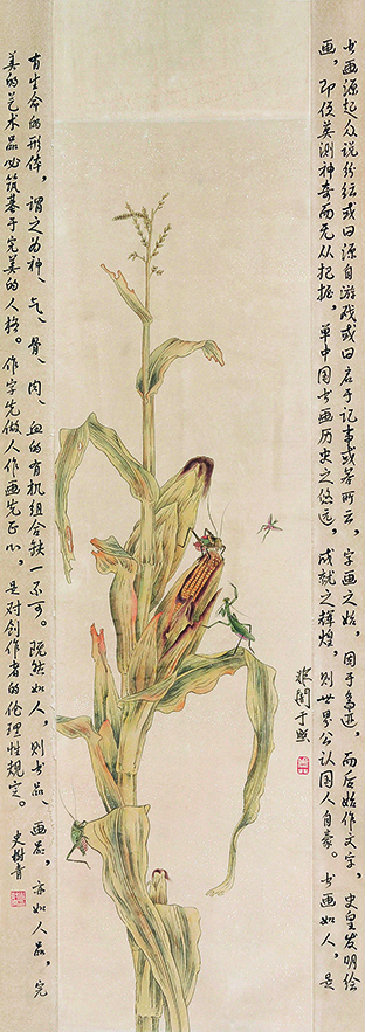 书画源起众说纷纭或曰源自游戏或曰启于记事或若所云，字画之始，因于鸟迹，而后始作文字，史皇发明绘
画，即使莫测神奇而无从把握，单中国书画历史之悠远，成就之辉煌，则世界公认国人自豪。书画如人，是
非闇于照
有生命的形体，谓之为神、气、骨、肉、血的有机组合缺一不可。既然如人，则书品、画品，亦如人品，完
美的艺术品必筑基于完美的人格。作字先做人作画先正心，是对创作者的伦理性规定。
史树青